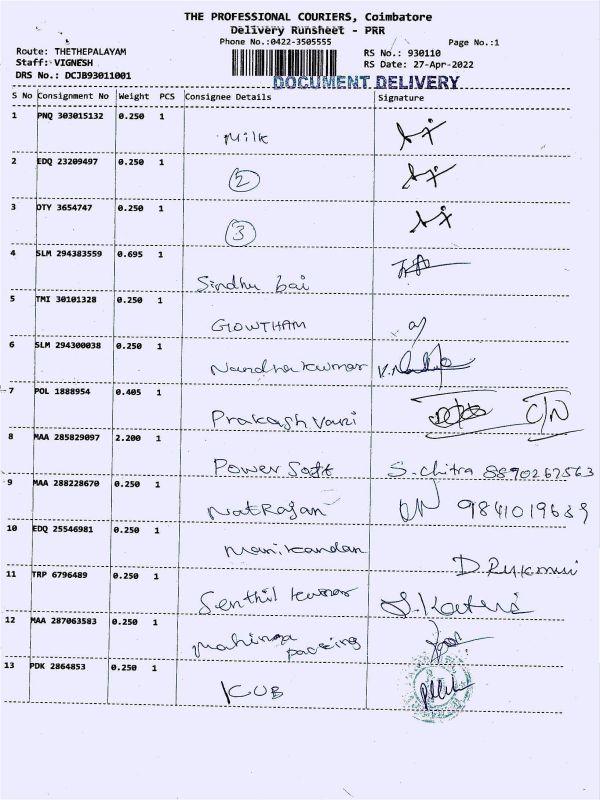 THE PROFESSIONAL COURIERS, Coimbatore
Delivery Runsheet - PRR
Phone No.:0422-3505555 Page No.:1
Route: THETHEPALAYAM RS No.: 930110
Staff: VIGNESH RS Date: 27-Apr-2022
DRS No.: DCJB93011001
DOCUMENT DELIVERY
S No Consignment No Weight PCS Consignee Details Signature
1 PNQ 303015132 0.250 1
Milk
2 EDQ 23209497 0.250 1
2
3 OTY 3654747 0.250 1
3
4 SLM 294383559 0.695 1
Sindhu bai
5 TMI 30101328 0.250 1
GOWTHAM
6 SLM 294300038 0.250 1
Nandha kumar
7 POL 1888954 0.405 1
Prakash C/N
8 MAA 285829097 2.200 1
Power Soft S. Chitra 8890267563
9 MAA 288228670 0.250 1
NatRajan 9841019639
10 EDQ 25546981 0.250 1
Manikandan D. Rukmni
11 TRP 6796489 0.250 1
Senthil kumar
12 MAA 287063583 0.250 1
Mahinga pacging
13 PDK 2864853 0.250 1
KUB